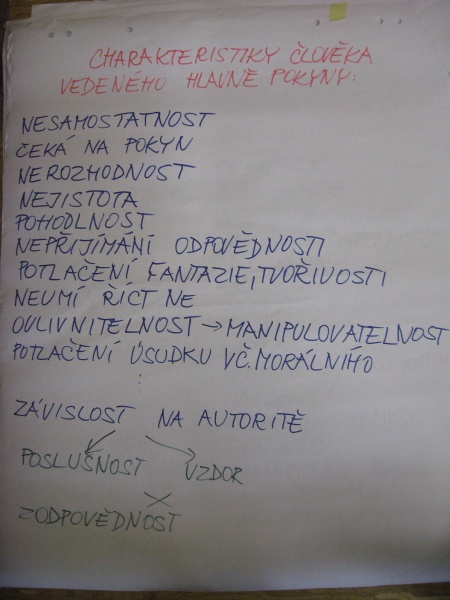 CHARAKTERISTIKY ČLOVĚKA
VEDENÉHO HLAVNĚ POKYNY:
NESAMOSTATNOST
ČEKÁ NA POKYN
NEROZHODNOST
NEJISTOTA
POHODLNOST
NEPŘIJÍMÁNÍ ODPOVĚDNOSTI
POTLAČENÍ FANTAZIE, TVOŘIVOSTI
NEUMÍ ŘÍCT NE
OVLIVNITELNOST → MANIPULOVATELNOST
POTLAČENÍ ÚSUDKU VČ. MORÁLNÍHO
:
ZÁVISLOST NA AUTORITĚ
POSLUŠNOST VZDOR
ZODPOVĚDNOST